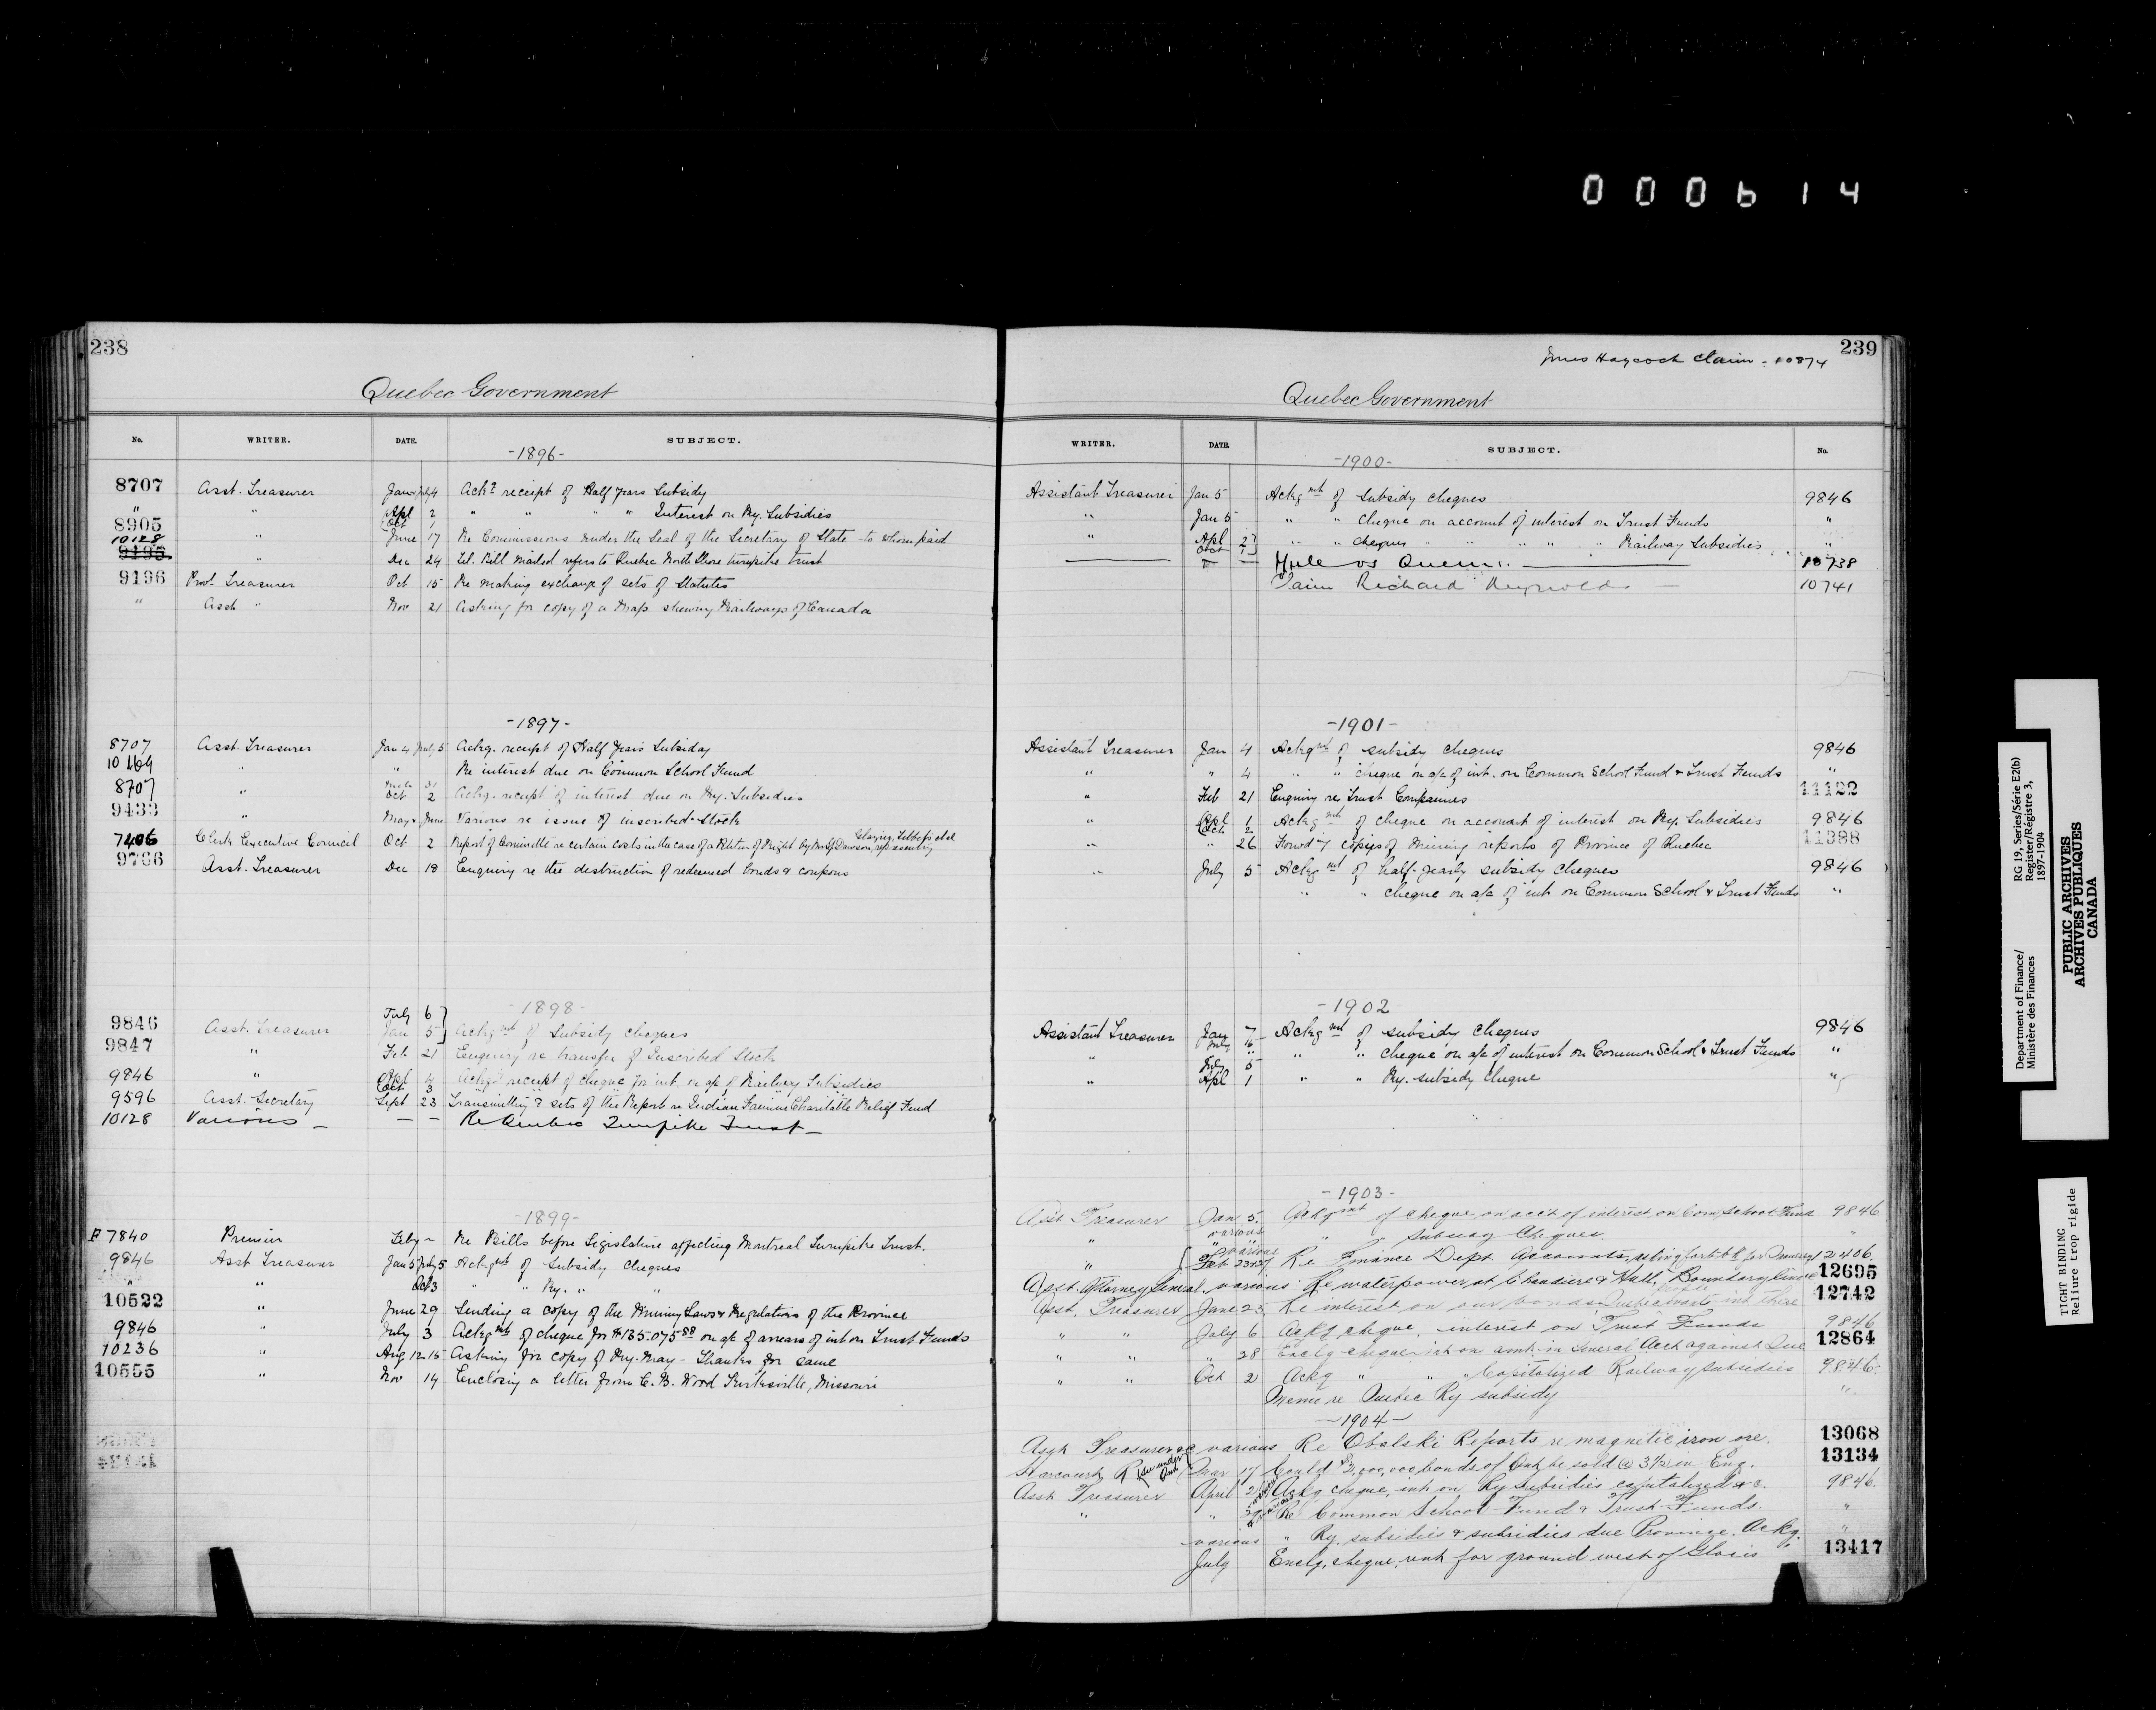 000614
238
Quebec Government
No. WRITER. DATE. SUBJECT.
-1896-
8707 Asst. Treasurer Jan 4 July 4 Ackg receipt of Half Years Subsidy
" " Apl 2 " " " " Interest on Ry. Subsidies
Oct 1
8905 " June 17 Re Commissions under the Seal of the Secretary of State - to whom paid
10128 9195 " Dec 24 Tel. Bill mailed refers to Quebec North Shore turnpike trust
9196 Prov. Treasurer Oct 15 Re making exchange of sets of Statutes
" Asst. " Nov 21 Asking for copy of a Map showing Railways of Canada
-1897-
8707 Asst. Treasurer Jan 4 July 5 Ackg. receipt of Half Years Subsidy
10169 " " Re interest due on Common School Fund
8707 " Mch 31 Oct 2 Ackg. receipt of interest due on Ry. Subsidies
9433 " May & June Various re issue of inscribed Stock
7406 Clerk Executive Council Oct 2 Report of Committee re certain costs in the case of a Petition of Right by representing
9766 Asst. Treasurer Dec 18 Enquiry re the destruction of redeemed bonds & coupons
-1898-
July 6
9846 Asst. Treasurer Jan 5 Ackgmt of Subsidy Cheques
9847 " Feb 21 Enquiry re transfer of Inscribed Stock
9846 " Apl 4 Oct 3 Ackg receipt of cheque for int. on a/c of Railway Subsidies
9596 Asst. Secretary Sept 23 Transmitting 2 sets of the Report re Indian Famine Charitable Relief Fund
10128 Various - - - Re Quebec Turnpike Trust -
-1899-
7840 Premier Feby - Re Bills before Legislature affecting Montreal Turnpike Trust.
9846 Asst Treasurer Jan 5 July 5 Ackgmt of Subsidy Cheques
" " Oct 3 " " Ry. " "
10522 " June 29 Sending a copy of the Mining Laws & Regulations of the Province
9846 " July 3 Ackgmt of cheque for $125.075 on a/c of arrears of int on Trust Funds
10236 " Aug 12 15 Asking for copy of Ry. Map - Thanks for same
10555 " Nov 14 Enclosing a letter from C. B. Wood Kirksville, Missouri
239
Jones Haycock Claim - 10874
Quebec Government
WRITER. DATE. SUBJECT. No.
-1900-
Assistant Treasurer Jan 5 Ackgmt of subsidy cheques 9846
" Jan 5 " " cheque on account of interest on Trust Funds "
" Apl 2 Oct 1 " " cheques " " " " Railway Subsidies "
Hule vs Queen 10738
Claim Richard Reynolds - 10741
-1901-
Assistant Treasurer Jan 4 Ackgmt of subsidy cheques 9846
" " 4 " " cheque on a/c of int. on Common School Fund & Trust Funds "
" Feb 21 Enquiry re Trust Companies 11122
" Apl 1 Oct 2 Ackgmt of cheque on account of interest on Ry. Subsidies 9846
" " 26 Forwdg copies of Mining reports of Province of Quebec 11388
" July 5 Ackgmt of half-yearly subsidy cheques 9846
" " cheque on a/c of int on Common School & Trust Funds "
-1902-
Assistant Treasurer Jan 7 Ackgmt of subsidy cheques 9846
" July 5 " " cheque on a/c of interest on Common School & Trust Funds "
" Apl 1 " " Ry. subsidy cheque "
-1903-
Asst Treasurer Jan 5. Ackgmt of cheque on acc't of interest on Com School Fund 9846
" various " " Subsidy Cheques. "
" Feb 23 & 27 Re Finance Dept. Accounts 12406
Asst Attorney General, various Re water power at Chaudiere & Hull, Boundary line 12695
Asst. Treasurer June 23 Re interest on our bonds. 12742
" " July 6 Ackg cheque, interest on Trust Funds 9846
" " " 28 Enclg cheque int on amt. in General Acct against Que 12864
" " Oct 2 Ackg " " " Capitalized Railway subsidies 9846
Memo re Quebec Ry subsidy "
-1904-
Asst Treasurer various Re Obalski Reports re magnetic iron ore. 13068
Harcourt R (see under Ont) Mar 17 Could $2,000,000 bonds of Ont. be sold @ 3½ in Eng. 13134
Asst Treasurer April 2 Ackg cheque, int on Ry Subsidies capitalized &c. 9846
" " Re Common School Fund & Trust Funds. "
various " Ry. subsidies & subsidies due Province. Ackg. "
July Enclg. cheque, rent for ground west of Glacis 13417
Department of Finance/
Ministère des Finances
RG 19, Series/Série E2(b)
Register/Régistre 3,
1897-1904
PUBLIC ARCHIVES
ARCHIVES PUBLIQUES
CANADA
TIGHT BINDING
Reliure trop rigide